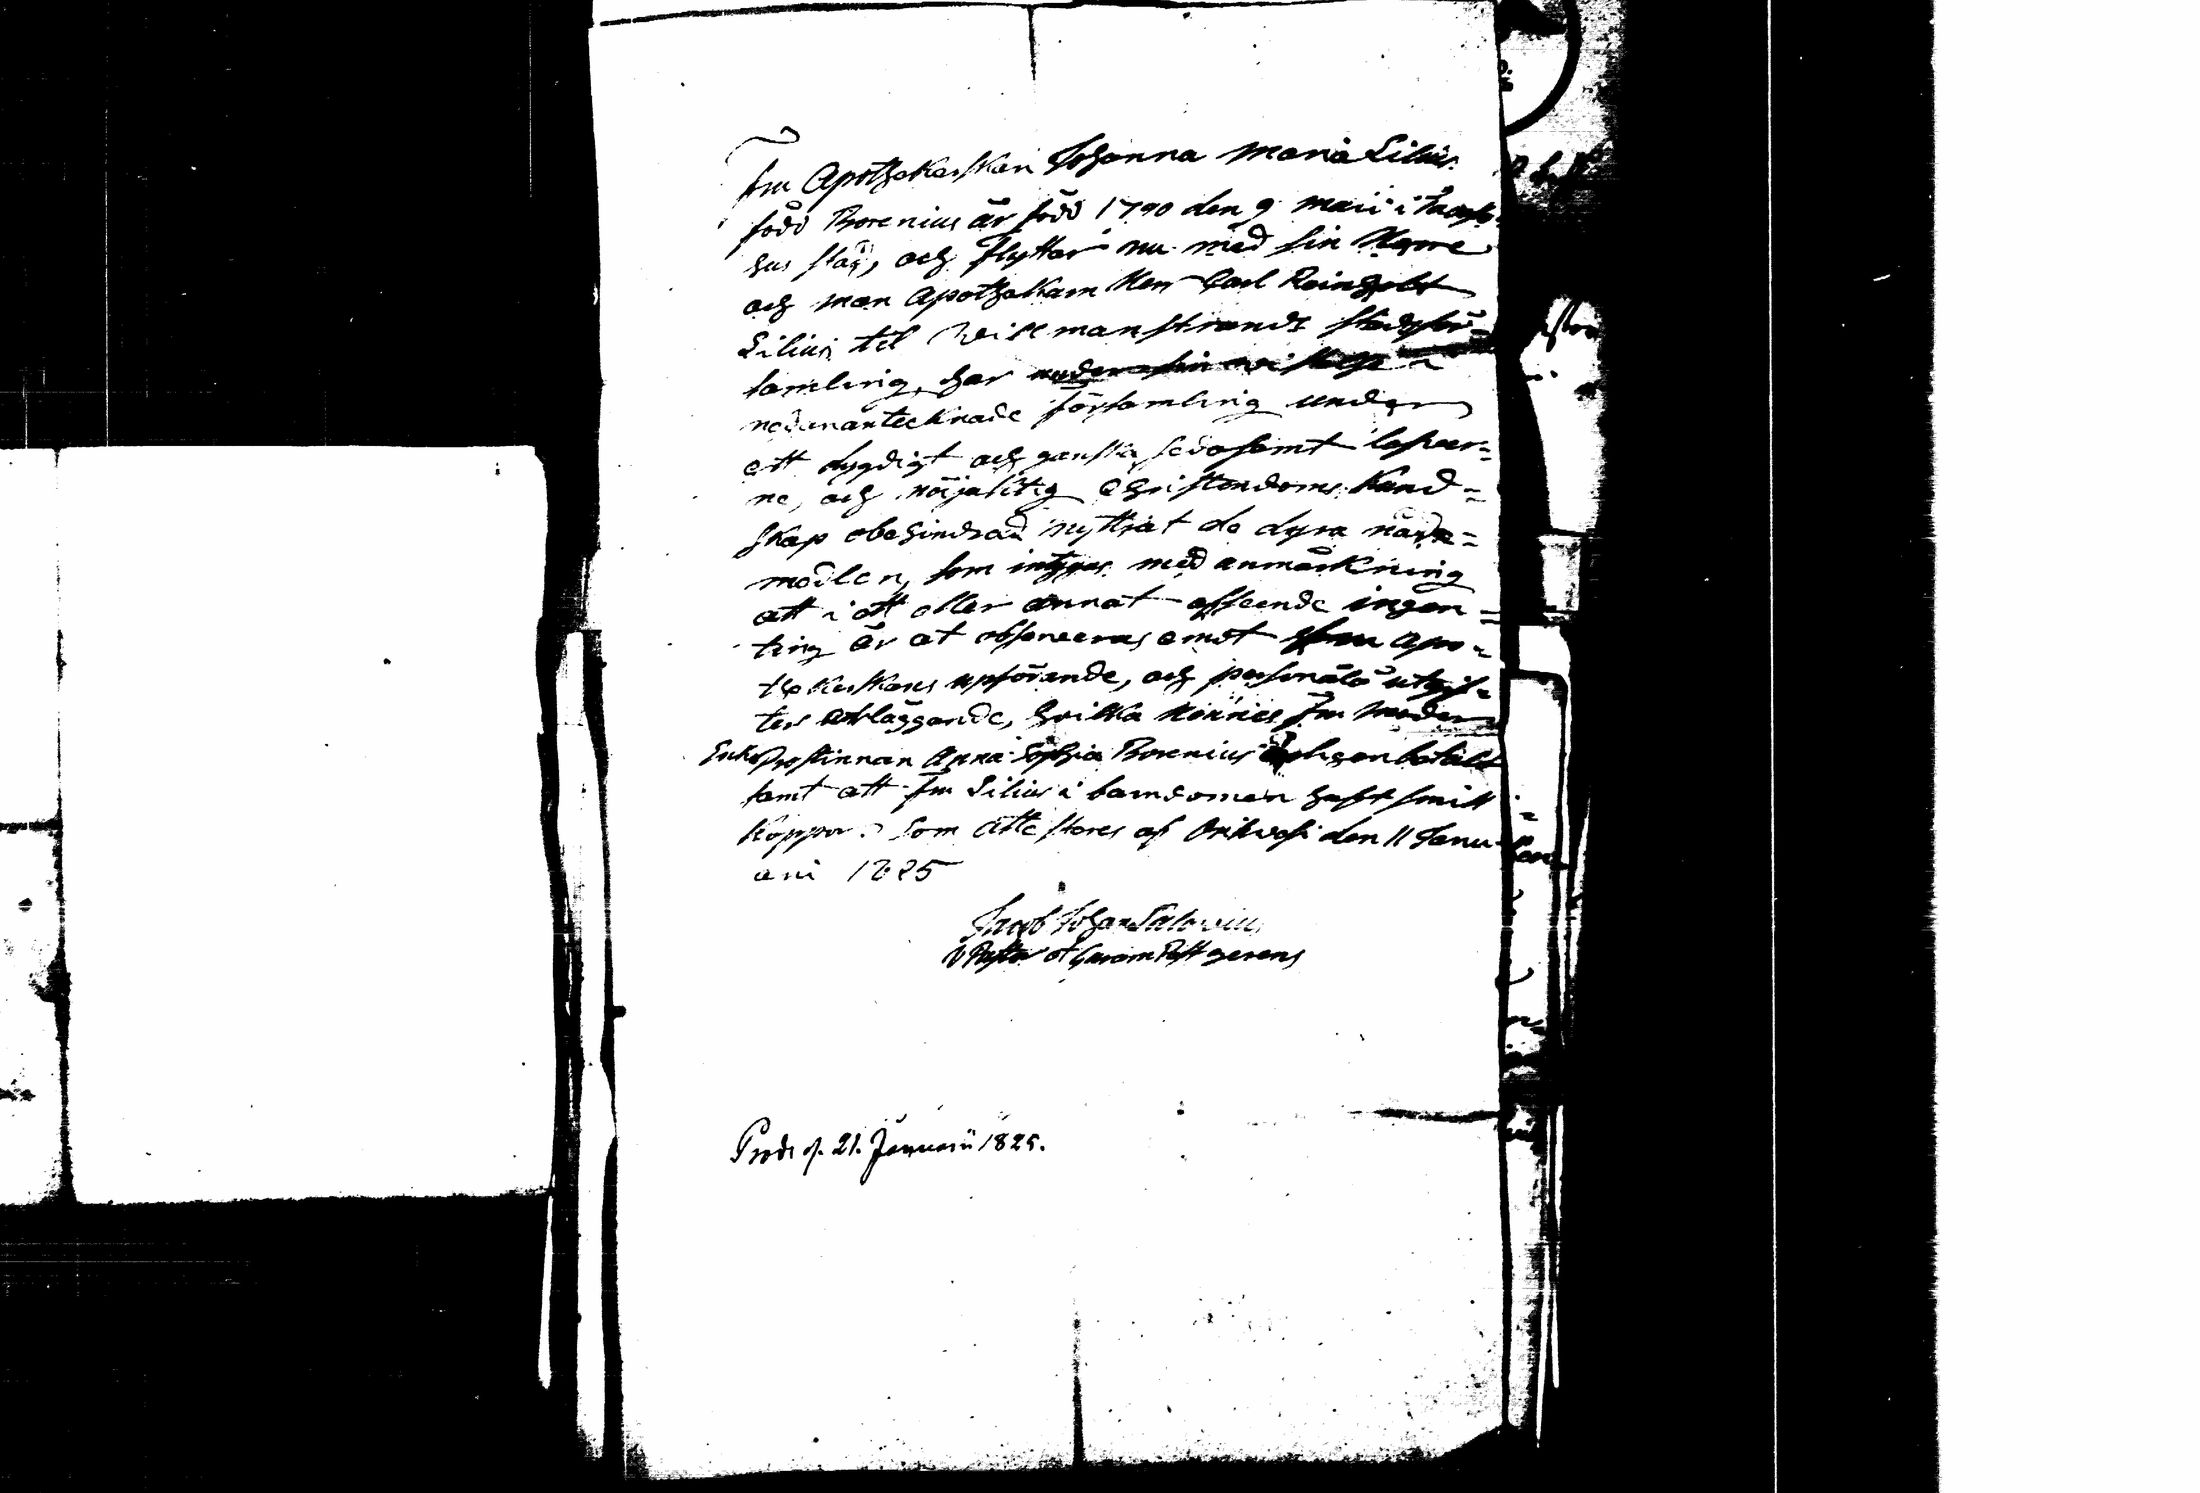 Fru Apothekerskan Johanna Maria Lilius
född Borenius är född 1790 den 9 Maii i Tavast-
hus stad, och flyttar nu med sin Herre
och man Apothekarn Herr Carl Reinholt
Lilius til Willmanstrands stadsför=
samling, har
nedanantecknade församling under
ett dygdigt och ganska sedosamt lefver=
ne, och nöjaktig Christendoms kund=
skap obehindrad nyttjat de dyra nåde=
medlen, som intygas med anmärkning
att i ett eller annat afseende ingen=
ting är at observeras emot Fru Apo=
thekerskans upförande, och personela utgif=
ters afläggande, hvilka hennes Fru Moder
Enkeprostinnan Anna Sophia Borenius betalt
samt att Fru Lilius i barndomen haft smitt
koppor. Som attesteres af Orihvesi den 11 Janu-
arii 1825
Jacob Johan Salovius
V Pastor et Sacrom Past gerens
Prods d. 21. Januarii 1825.